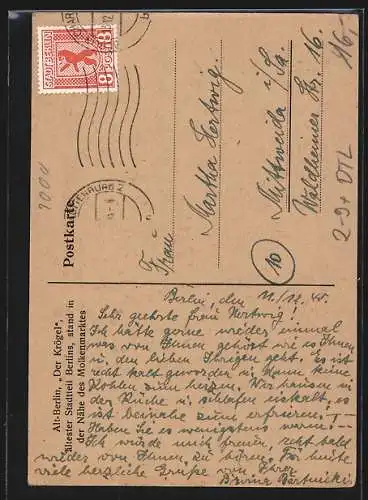 STADT BERLIN
8 8
CHARLOTTENBURG 2
b
16,-
1000
2-9+ DTL
Postkarte
Frau
Martha Hertwig
Mittweida i/Sa.
Waldheimer Str. 16.
10
Alt-Berlin, „Der Krögel",
ältester Stadtteil Berlins, stand in
der Nähe des Molkenmarktes
Berlin, den 11/12. 45.
Sehr geehrte Frau Hertwig!
Ich hätte gerne wieder einmal
was von Ihnen gehört wie es Ihnen
u. den lieben Ihrigen geht. Es ist
recht kalt geworden u. kann keine
Kohlen zum heizen. Wir hausen in
der Küche u. schlafen eiskalt, es
ist beinahe zum erfrieren! -
Haben Sie es wenigstens warm? -
Ich würde mich freuen recht bald
wieder von Ihnen zu hören. Für heute
viele herzliche Grüße von Ihrer